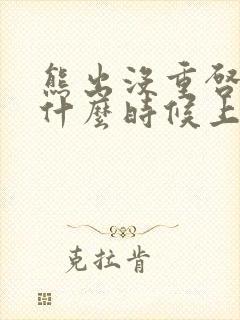 熊出沒重啓
什麼時候上
克拉肯